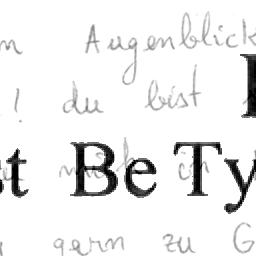 Augenblick
! du bist
st Be Ty
mich in
gern zu G